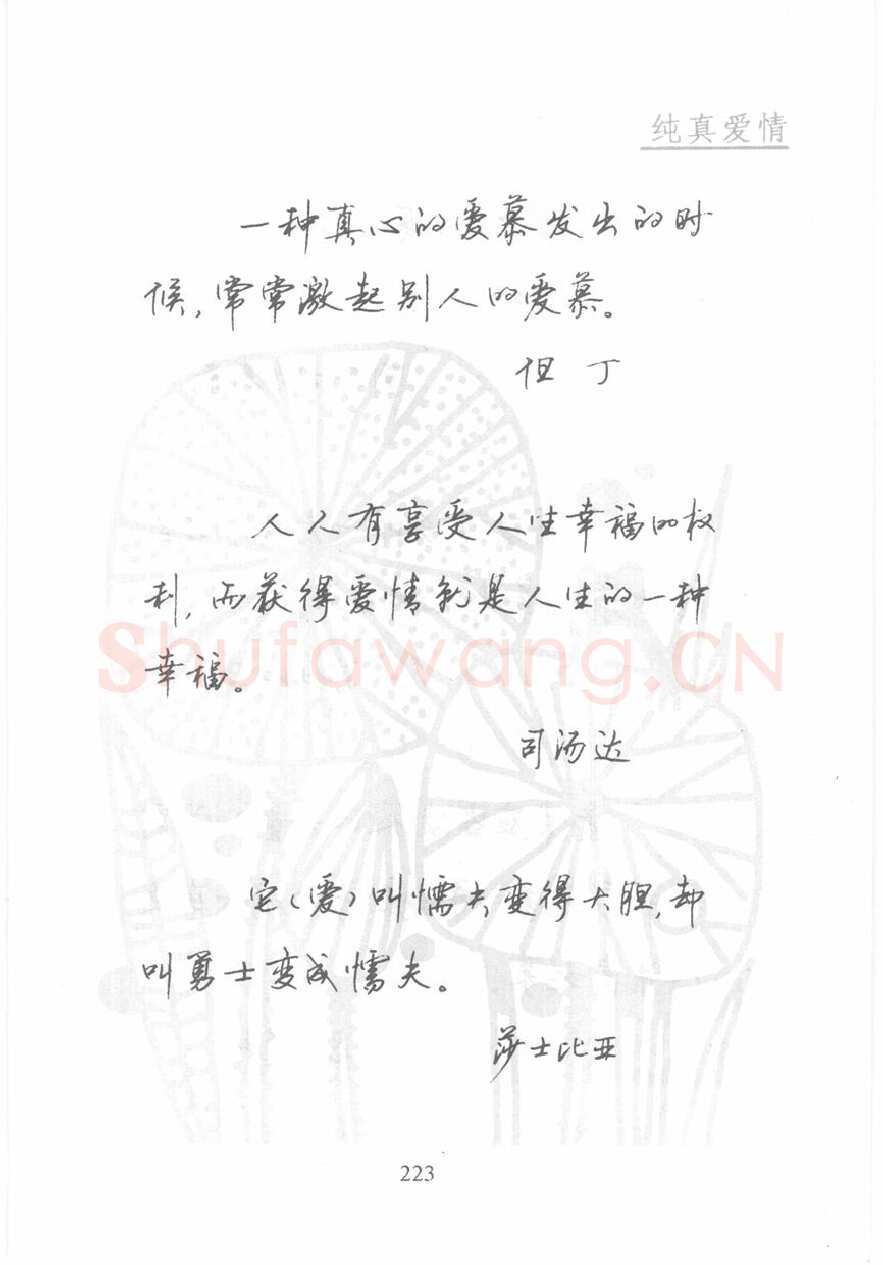 纯真爱情
一种真心的爱慕发出的时
候,常常激起别人的爱慕。
但 丁
人人有享受人生幸福的权
利,而获得爱情就是人生的一种
幸福。
Shufawang.CN
司汤达
它(爱)叫懦夫变得大胆,却
叫勇士变成懦夫。
莎士比亚
223